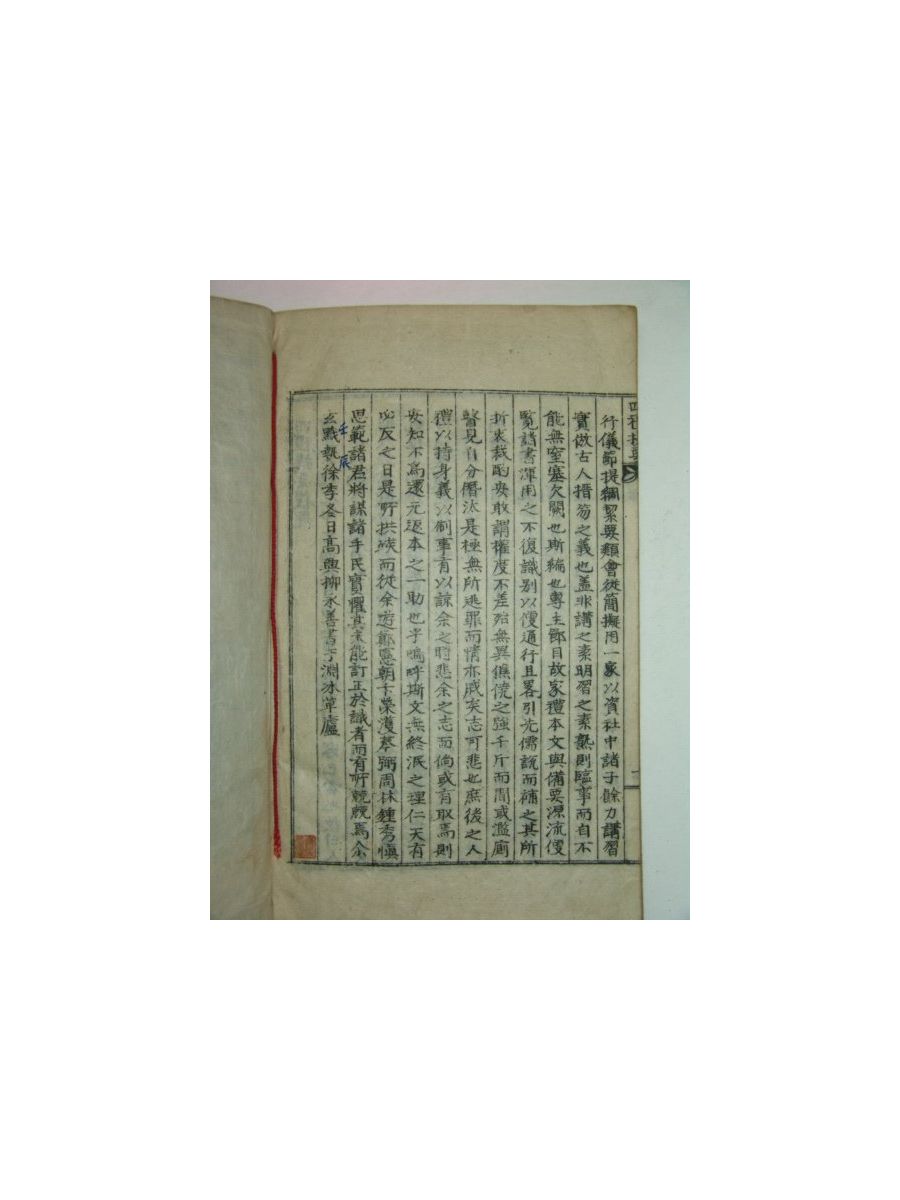 行儀節提綱絜要類會從簡擬用一家以資社中諸子餘力講習
實倣古人搢笏之義也盖非講之素明習之素熟則臨事而自不
能無窒塞欠闕也斯編也專主節目故家禮本文與備要源流便
覧諸書渾用之不復識别以便通行且畧引先儒說而補之其所
折衷裁酌安敢謂權度不差殆無異僬僥之強千斤而間或濫廁
瞽見自分僭汰是極無所逃罪而情亦戚矣志可悲也庶後之人
禮以持身義以制事有以諒余之時悲余之志而倘或有取焉則
安知不為還元返本之一助也乎嗚呼斯文無終泯之理仁天有
必反之日是所拱竢而從余遊鄭憲朝卞榮濩蔡弼周林鍾秀愼
思範諸君將謀諸手民實懼其未能訂正於識者而有所兢兢焉余
玄黓執徐季冬日高興柳永善書于淵冰草廬
壬辰